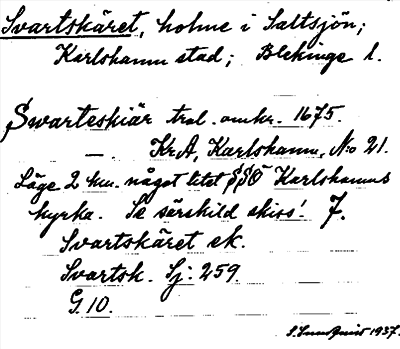 Svartskäret, holme i Saltsjön;
Karlshamn stad; Blekinge l.
Swarteskiär tral. omkr. 1675.
— KrA, Karlshamn, No 21.
Läge 2 km. något litet SSÖ Karlshamns
kyrka. Se särskild skiss! 7.
Svartskäret ek.
Svartsk. Sj. 259
G. 10.
1937.